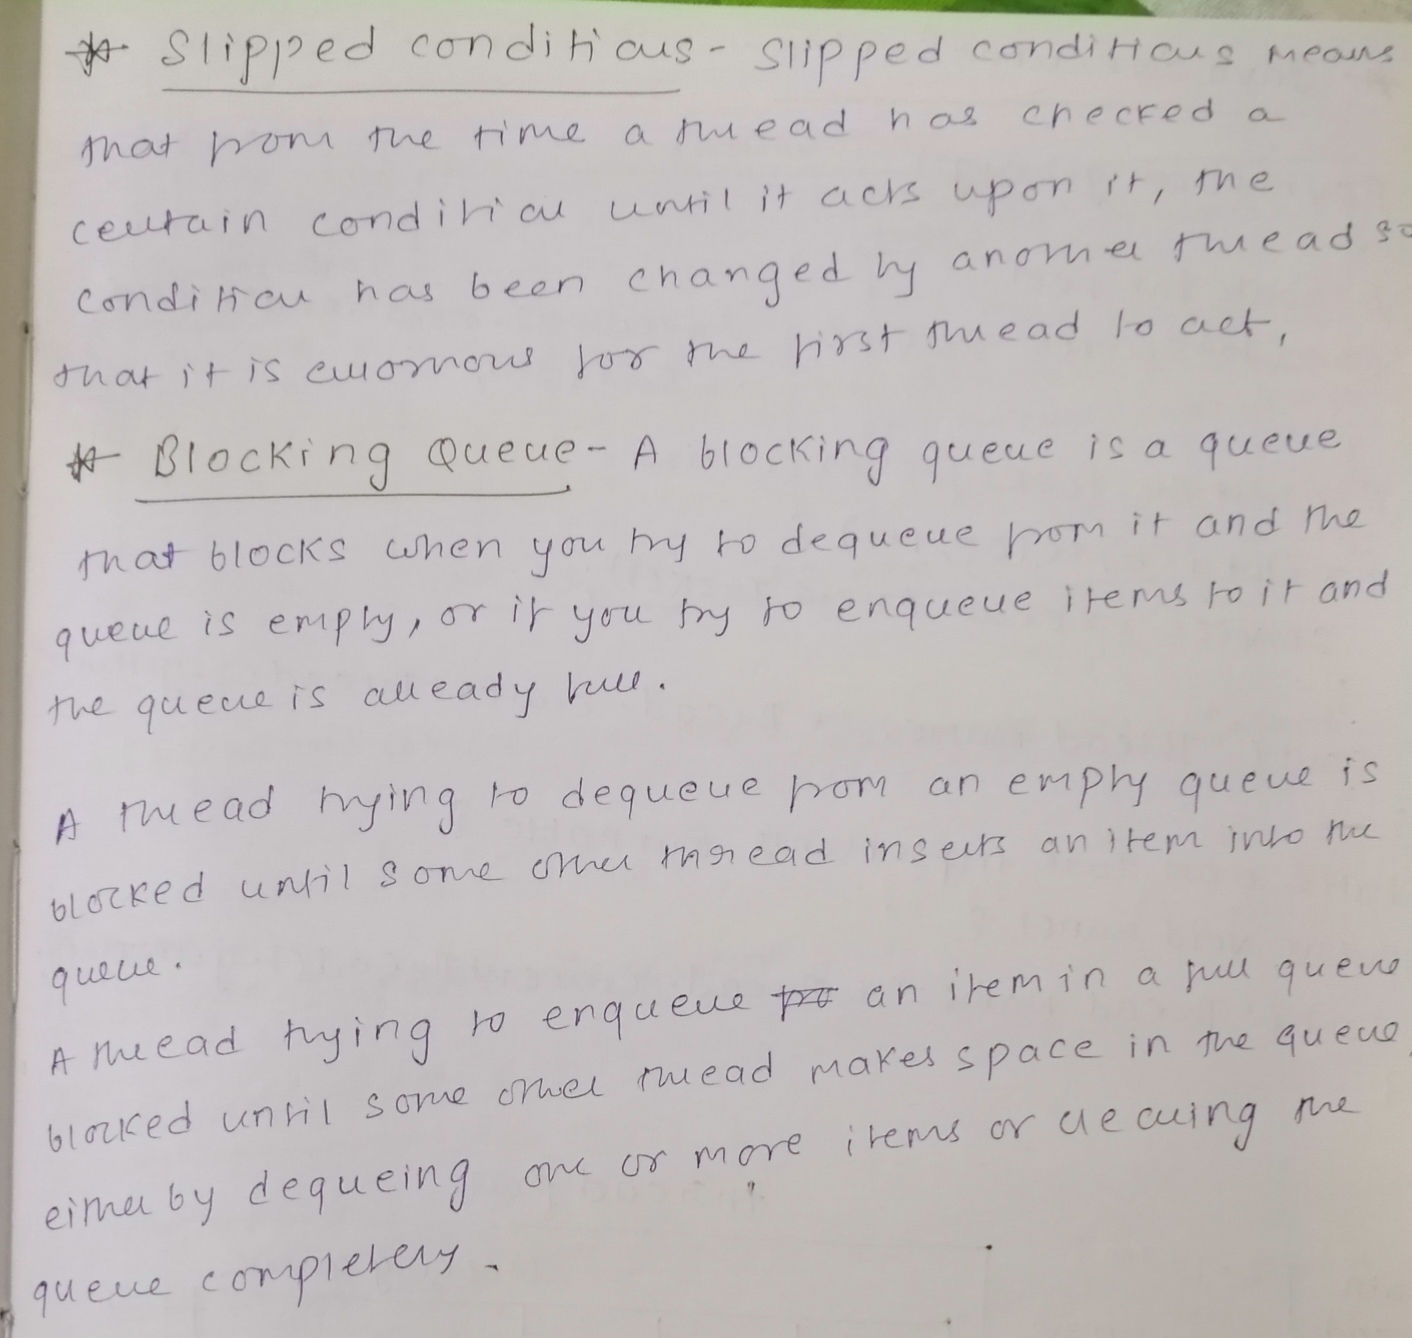 * Slipped conditions - Slipped conditions means
that from the time a thread has checked a
certain condition until it acts upon it, the
condition has been changed by another thread so
that it is erroneous for the first thread to act,
* Blocking Queue - A blocking queue is a queue
that blocks when you try to dequeue from it and the
queue is empty, or if you try to enqueue items to it and
the queue is already full.
A thread trying to dequeue from an empty queue is
blocked until some other thread inserts an item into the
queue.
A thread trying to enqueue an item in a full queue
blocked until some other thread makes space in the queue
either by dequeing one or more items or clearing the
queue completely.